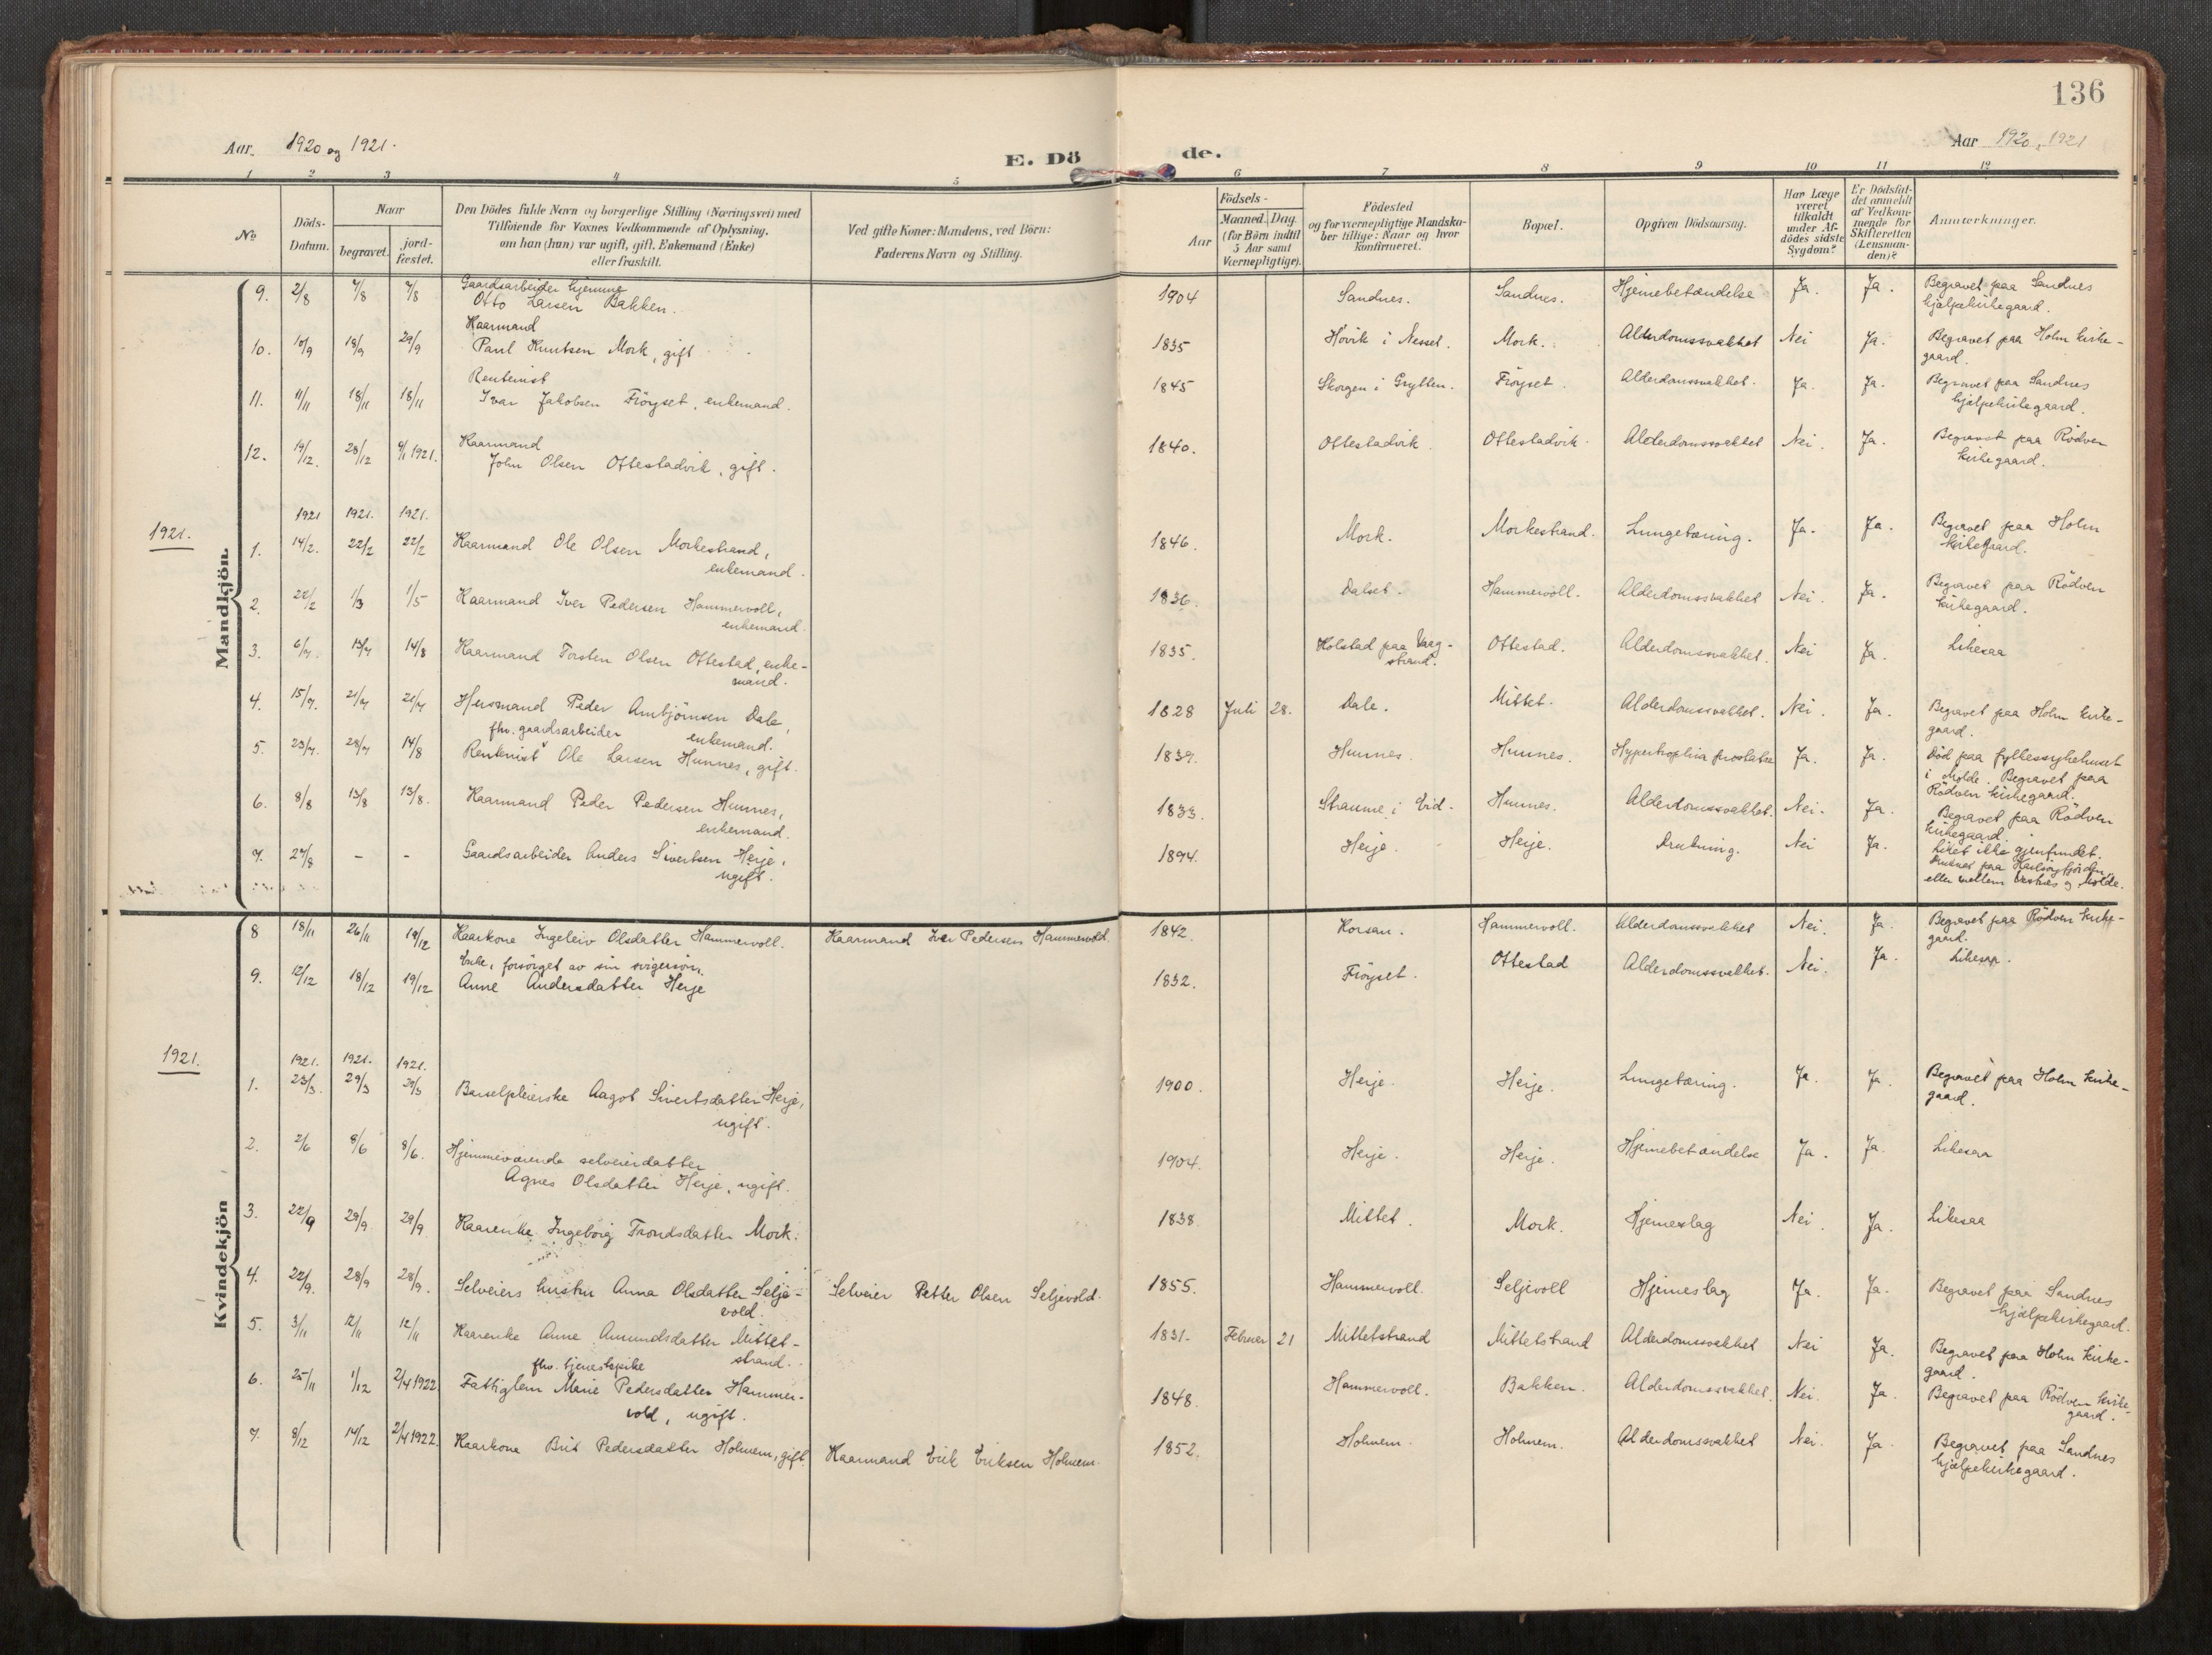 136
Aar. 1920 og 1921.
E. Dö
de.
Aar 1920, 1921
1 2 3 4 5 6 7 8 9 10 11 12
No
Döds-
Datum.
Naar
begravet.
jord-
fæstet.
Den Dödes fulde Navn og borgerlige Stilling (Næringsvei) med
Tilföiende for Voxnes Vedkommende af Oplysning,
om han (hun) var ugift, gift, Enkemand (Enke)
eller fraskilt.
Ved gifte Koner: Mandens, ved Börn:
Faderens Navn og Stilling.
Födsels-
Aar
Maaned. Dag.
(for Börn indtil
5 Aar samt
Værnepligtige).
Födested
og for værnepligtige Mandska-
ber tillige: Naar og hvor
Konfirmeret.
Bopæl.
Opgiven Dödsaarsag.
Har Læge
været
tilkaldt
under Af-
dödes sidste
Sygdom?
Er Dödsfal-
det anmeldt
af Vedkom-
mende for
Skifteretten
(Lensman-
den)?
Anmærkninger.
Mandkjön.
Gaardsarbeider hjemme
9. 2/8 7/8 7/8 Otto Larsen Bakken. 1904 Sandnes. Sandnes. Hjernebetændelse Ja. Ja. Begravet paa Sandnes
hjælpekirkegaard.
Kaarmand
10. 10/9 18/9 29/9 Paul Knutsen Mork, gift 1835 Hovik i Nesset. Mork. Alderdomssvakhet Nei Ja. Begravet paa Holm kirke-
gaard.
Rentenist
11. 11/11 18/11 18/11 Ivar Jakobsen Fröyset, enkemand. 1845 Skorgen i Grytten. Fröyset. Alderdomssvakhet. Ja. Ja. Begravet paa Sandnes
hjælpekirkegaard.
Kaarmand
12. 19/12. 28/12 9/1 1921. John Olsen Ottestadvik, gift. 1840. Ottestadvik. Ottestadvik. Alderdomssvakhet Nei. Ja. Begravet paa Rödven
kirkegaard.
1921.
1921 1921. 1921.
1. 14/2. 22/2 22/2 Kaarmand Ole Olsen Morkestrand,
enkemand. 1846. Mork. Morkestrand. Lungetæring. Ja. Ja. Begravet paa Holm
kirkegaard.
2. 22/2 1/3 1/5 Kaarmand Iver Pedersen Hammervoll,
enkemand. 1836. Dalset. Hammervoll. Alderdomssvakhet Nei. Ja. Begravet paa Rödven
kirkegaard.
3. 6/7. 13/7 14/8 Kaarmand Torsten Olsen Ottestad, enke-
mand. 1835. Holstad paa Vaag-
strand. Ottestad. Alderdomssvakhet. Nei Ja. Likesaa
4. 15/7. 21/7 21/7 Husmand Peder Arnbjörnsen Dale,
enkemand. 1828 Juli 28. Dale. Mittet. Alderdomssvakhet. Nei. Ja. Begravet paa Holm kirke-
gaard.
fhv. gaardsarbeider
5. 23/7. 28/7 14/8 Rentenist Ole Larsen Hunnes, gift. 1839. Hunnes. Hunnes. Hypertrophia prostatae Ja. Ja. Död paa fylkessykehuset
i Molde. Begravet paa
Rödven kirkegaard.
6. 8/8 13/8 13/8. Kaarmand Peder Pedersen Hunnes,
enkemand. 1833. Straume i Eid. Hunnes. Alderdomssvakhet. Nei. Ja. Begravet paa Rödven
kirkegaard.
7. 27/8 - - Gaardsarbeider Anders Sivertsen Herje,
ugift. 1894. Herje. Herje. Drukning. Nei Ja. Liket ikke gjenfundet.
eller mellem Vestnes og Molde.
Kvindekjön
8 18/11 26/11 19/12 Kaarkone Ingeleiv Olsdatter Hammervoll. Kaarmand Iver Pedersen Hammervold. 1842. Korsan. Hammervoll. Alderdomssvakhet Nei. Ja. Begravet paa Rödven kirke-
gaard.
Enke, forsörget av sin svigersön,
9. 12/12 18/12 19/12 Anne Andersdatter Herje 1832. Fröyset. Ottestad Alderdomssvakhet. Nei. Ja. Likesaa.
1921.
1921. 1921. 1921.
1. 23/3. 29/3 29/3 Barselpleierske Aagot Sivertsdatter Herje,
ugift. 1900. Herje. Herje. Lungetæring. Ja. Ja. Begravet paa Holm kirke-
gaard.
2. 2/6 8/6 8/6. Hjemmeværende selveierdatter
Agnes Olsdatter Herje, ugift. 1904. Herje. Herje. Hjernebetændelse Ja. Ja. Likesaa
3. 22/9 29/9 29/9 Kaarenke Ingeborg Trondsdatter Mork. 1838 Mittet. Mork. Hjerneslag Nei. Ja. Likesaa
4. 22/9. 28/9 28/9. Selveiers hustru Anna Olsdatter Selje-
vold. Selveier Petter Olsen Seljevold. 1855. Hammervoll. Seljevoll Hjerneslag Ja. Ja. Begravet paa Sandnes
hjælpekirkegaard.
5. 3/11 12/11 12/11 Kaarenke Anne Amundsdatter Mittet-
strand. 1831. Februar 21 Mittetstrand Mittetstrand Alderdomssvakhet Nei Ja. Begravet paa Holm kirke-
gaard.
fhv. tjenestepike
6. 25/11 1/12 2/4 1922 Fattiglem Marie Pedersdatter Hammer-
vold, ugift. 1848. Hammervoll. Bakken. Alderdomssvakhet. Nei. Ja. Begravet paa Rödven kirke-
gaard.
7. 8/12 14/12 2/4 1922. Kaarkone Brit Pedersdatter Holmem, gift. Kaarmand Erik Eriksen Holmem. 1852. Holmem. Holmem. Alderdomssvakhet Nei. Ja. Begravet paa Sandnes
hjælpekirkegaard.